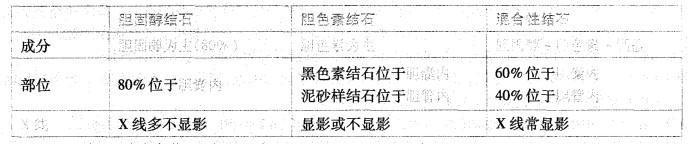 胆固醇结石 胆色素结石 混合性结石
成分 胆固醇为主(80%) 胆色素为主
部位 80%位于胆囊内 黑色素结石位于胆囊内 60%位于胆囊内
泥砂样结石位于胆管内 40%位于胆管内
X线 X线多不显影 显影或不显影 X线常显影